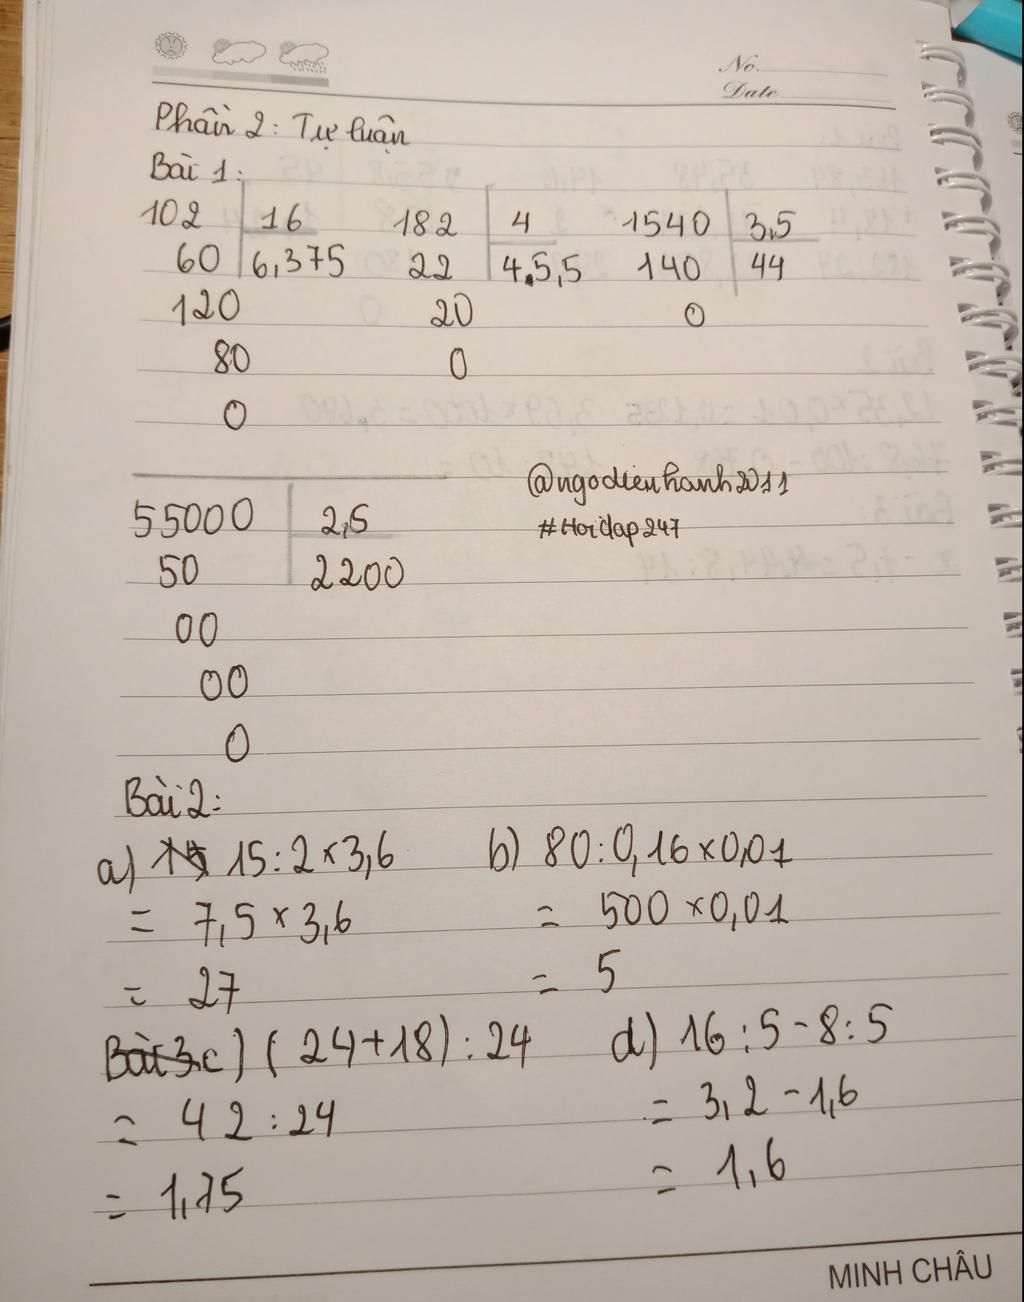 No.
Date
Phần 2: Tự luận
Bài 1:
102 16 182 4 1540 3,5
60 6,375 22 4,5,5 140 44
120 20 0
80 0
0
@ngodieuhanh2011
#Hoidap247
55000 2,5
50 2200
00
00
0
Bài 2:
a) 15:2×3,6 b) 80:0,16×0,01
= 7,5×3,6 = 500×0,01
= 27 = 5
Bài 3. c) (24+18):24 d) 16:5-8:5
= 42:24 = 3,2-1,6
= 1,75 = 1,6
MINH CHÂU